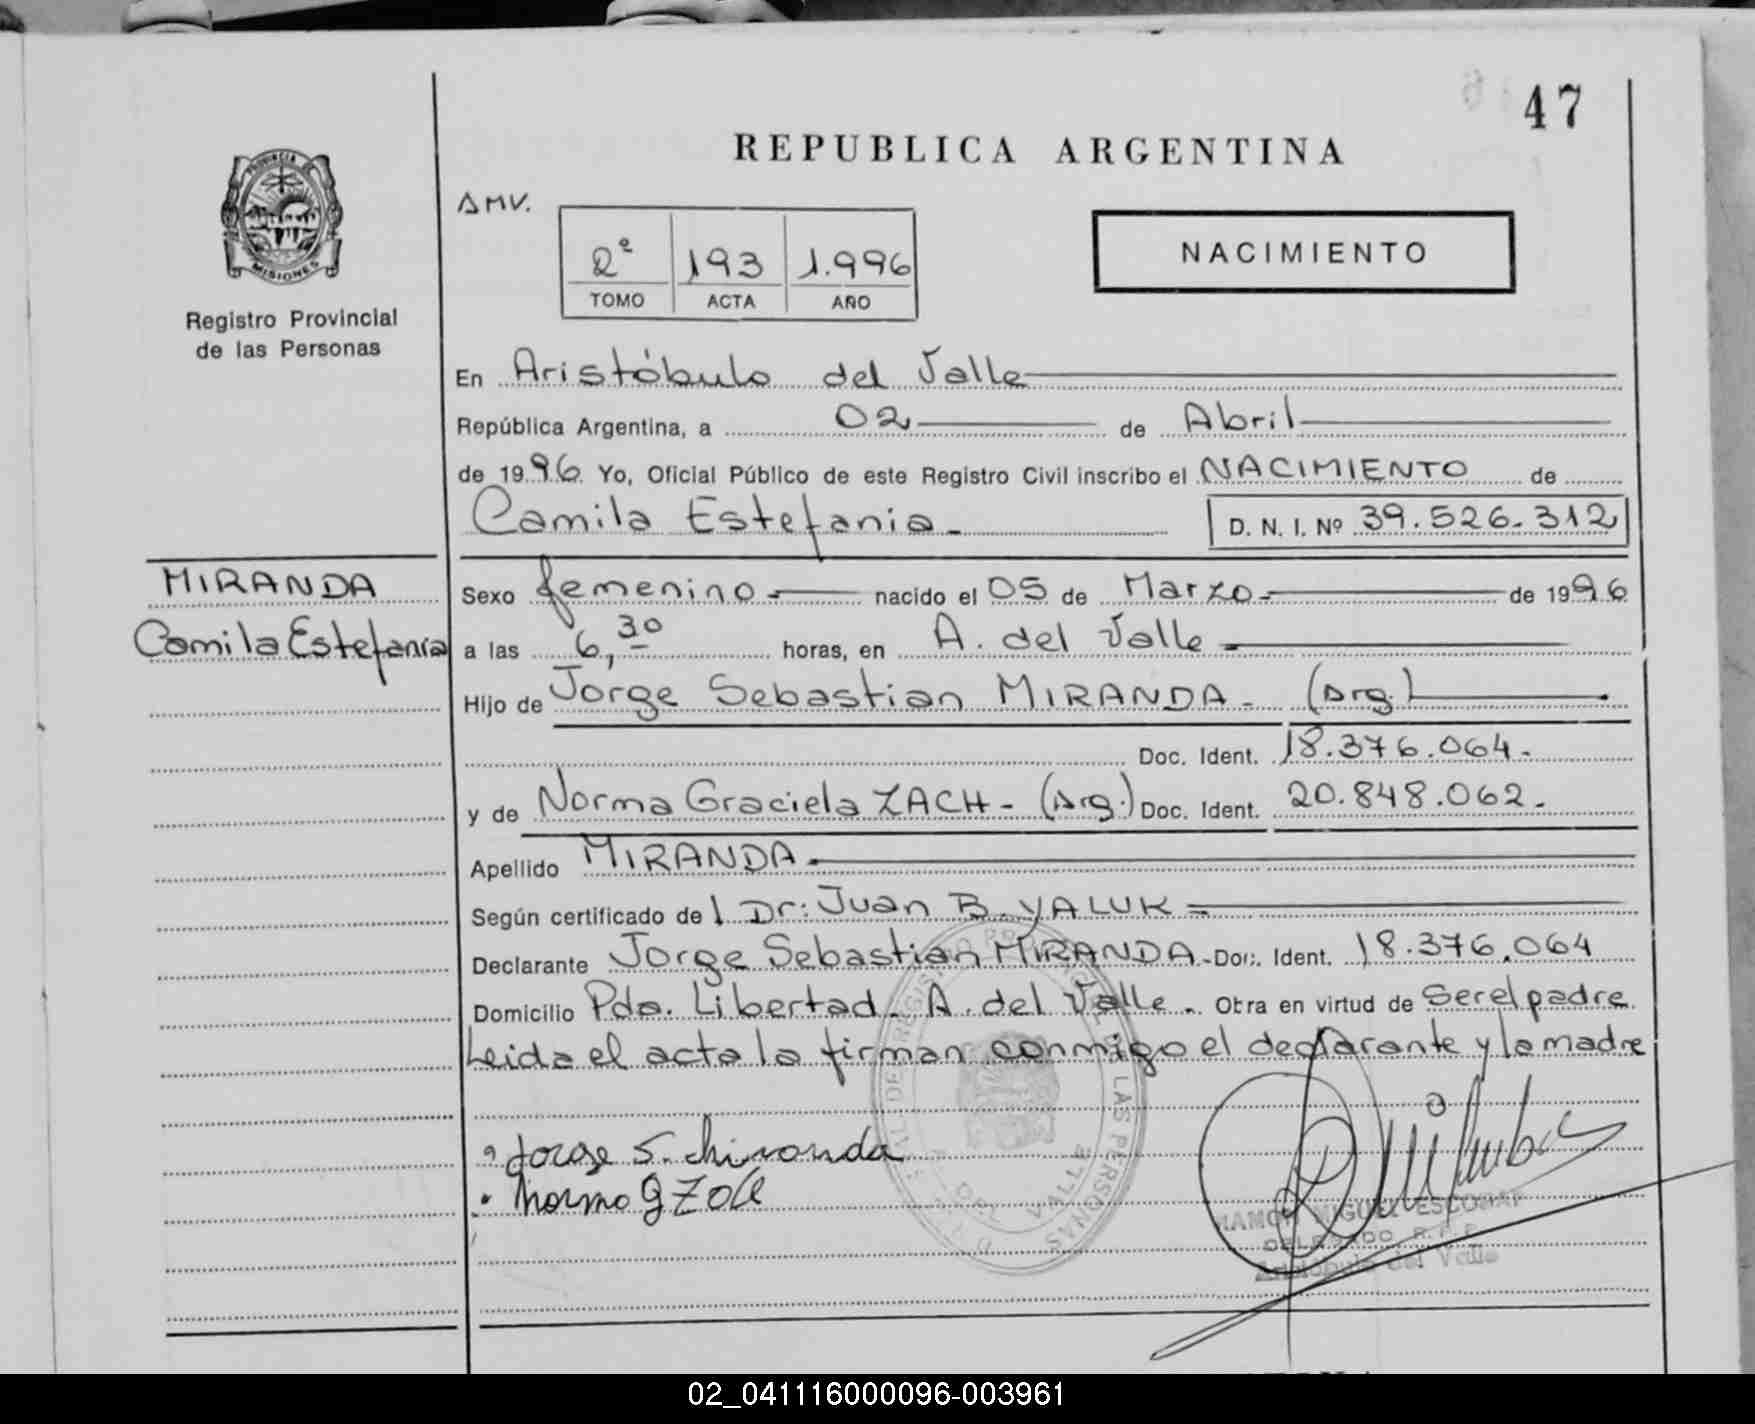 47
REPUBLICA ARGENTINA
PROVINCIA DE
MISIONES
Registro Provincial
de las Personas
AMV.
2º 193 1.996
TOMO ACTA AÑO
NACIMIENTO
En Aristóbulo del Valle
República Argentina, a 02 de Abril
de 1996. Yo, Oficial Público de este Registro Civil inscribo el NACIMIENTO de
Camila Estefania - D. N. I. Nº 39.526.312
MIRANDA
Camila Estefanía
Sexo femenino - nacido el 05 de Marzo - de 1996
a las 6,30 horas, en A. del Valle
Hijo de Jorge Sebastian MIRANDA - (Arg.)
Doc. Ident. 18.376.064.
y de Norma Graciela ZACH - (Arg.) Doc. Ident. 20.848.062.
Apellido MIRANDA
Según certificado de l Dr: Juan B. YALUK =
Declarante Jorge Sebastian MIRANDA - Doc. Ident. 18.376.064
Domicilio Pdo. Libertad. A. del Valle. Obra en virtud de Ser el padre.
Leida el acta la firman conmigo el declarante y la madre
Jorge S. Miranda
Norma G Zach
RAMON MIGUEL ESCOBAR
DELEGADO R.P.P.
Aristóbulo del Valle
02_041116000096-003961